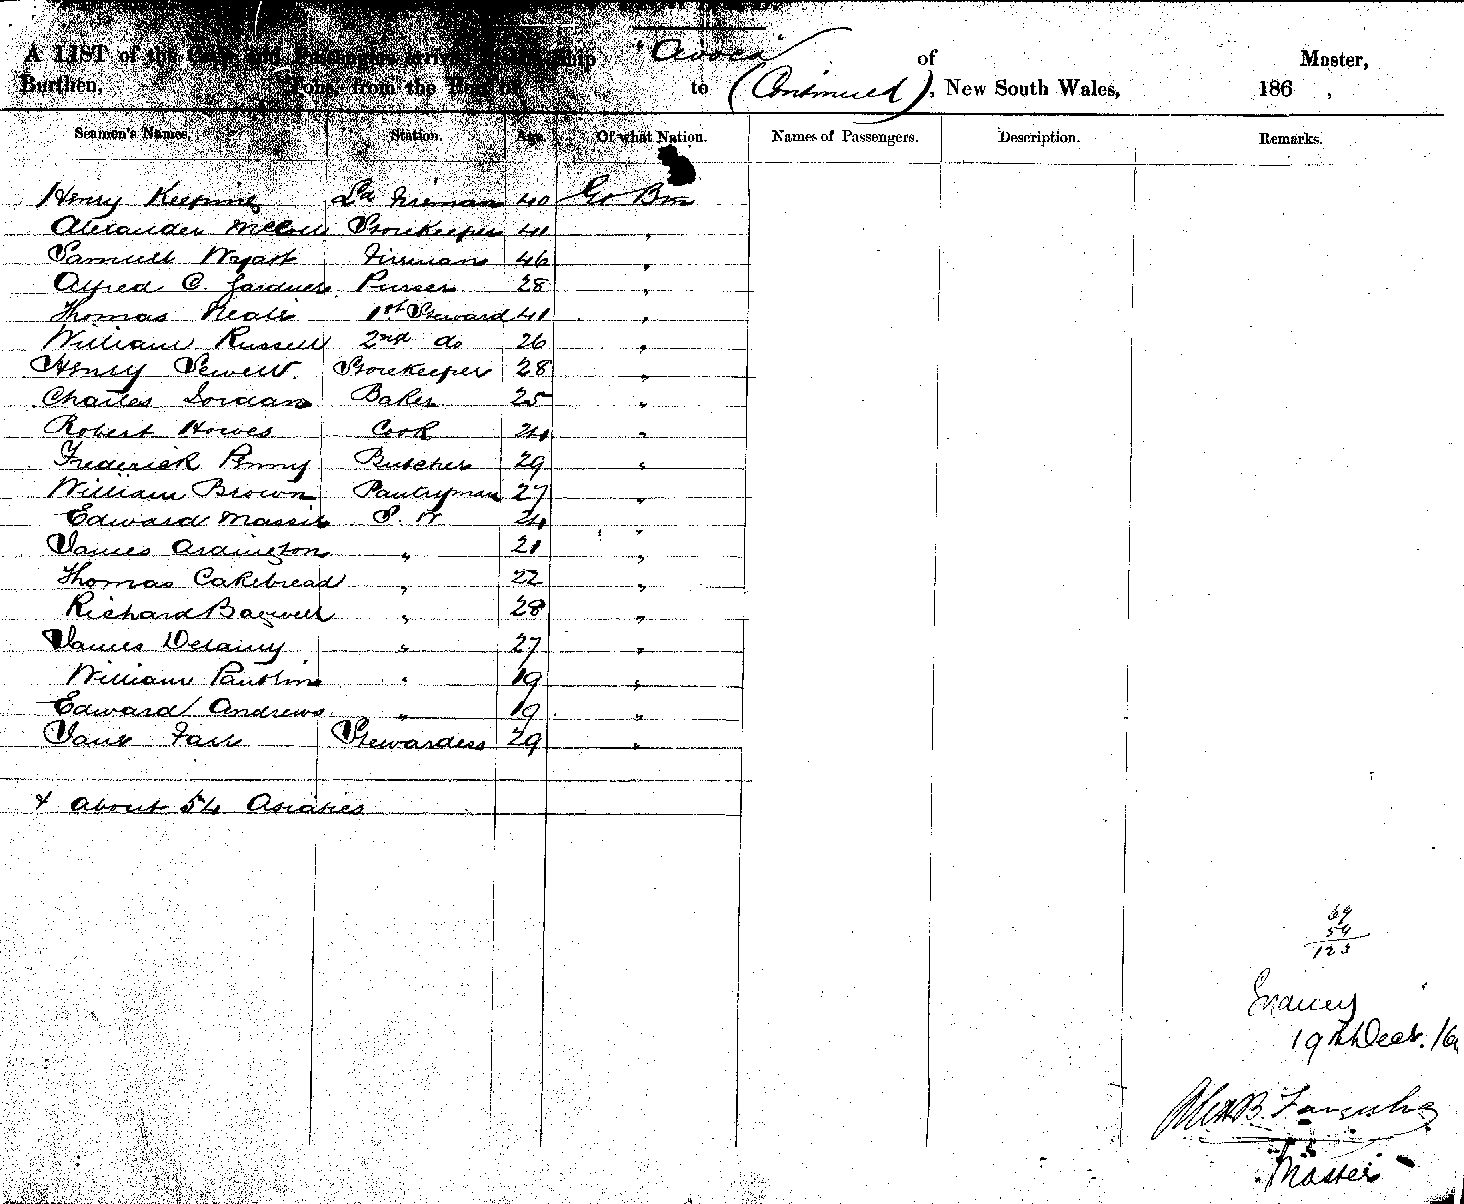 A LIST of the Crew and Passengers arrived in the ship "Avoca" of Master,
Burthen, Tons, from the Port of to (Continued), New South Wales, 186 ,
Seamen's Names. Station. Age. Of what Nation. Names of Passengers. Description. Remarks.
Henry Keeping Ld Fireman 40 Gt Bn
Alexander McColl Storekeeper 41 "
Samuel Wyatt Fireman 46 "
Alfred C. Gardner Purser 28 "
Thomas Neale 1st Steward 41 "
William Russell 2nd do 26 "
Henry Sewell Storekeeper 28 "
Charles Jordan Baker 25 "
Robert Howes Cook 24 "
Frederick Penny Butcher 29 "
William Brown Pantryman 27 "
Edward Massie S. W 24 "
James Ardington " 21 "
Thomas Cakebread " 22 "
Richard Bagwell " 28 "
James Delany " 27 "
William " 19 "
Edward Andrews " 19 "
Jane Stewardess 29 "
+ about 54 Asiatics
69
54
123
Sydney
19th Decr.
Alex B. Farquhar
Master